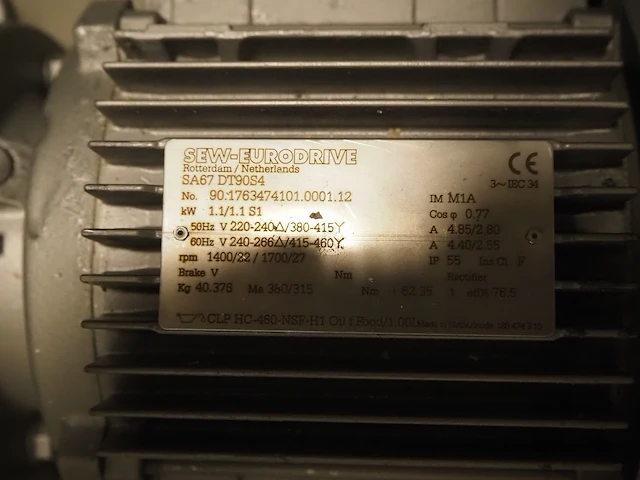 SEW-EURODRIVE
Rotterdam / Netherlands
SA67 DT90S4
3~IEC 34
No. 90.1763474101.0001.12
IM M1A
kW 1.1/1.1 S1
Cos φ 0.77
50Hz V 220-240△/380-415Y
A 4.85/2.80
60Hz V 240-266△/415-460Y
A 4.40/2.55
rpm 1400/22 / 1700/27
IP 55 Ins.Cl. F
Brake V Nm Rectifier
Kg 40.376 Ma 360/315 Nm i 62.35
CLP HC-460-NSF-H1 Oil Made in